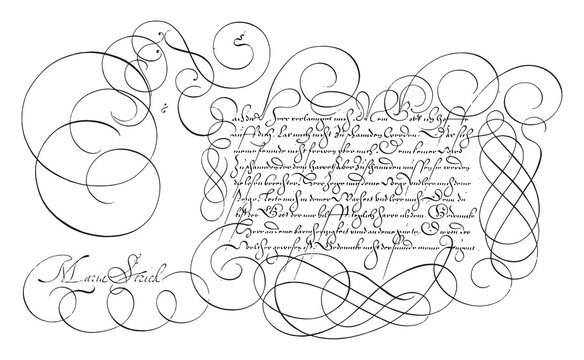 Nach dir Herr verlanget mich. Mein Gott ich hoffe
auff dich, Las mich nicht zu schanden werden, Das sich
meine feinde nicht frewen uber mich. Denn keiner wird
zu schanden der dein harret, Aber zu schanden müssen sie werden
die losen verechter. Herr zeige mir deine Wege und lere mich deine
steige. Leite mich in deiner Warheit und lere mich, Denn du
bist der Gott der mir hilfft, teglich harre ich dein. Gedencke
Herr an deine barmhertzigkeit und an deine güte, Die von der
Welt her gewesen ist. Gedencke nicht der sünde meiner Jugent.
Maria Strick